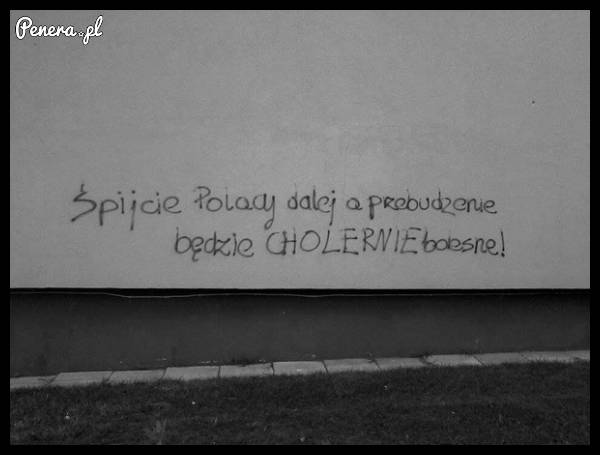 Penera.pl
Śpijcie Polacy dalej a przebudzenie
będzie CHOLERNIE bolesne!